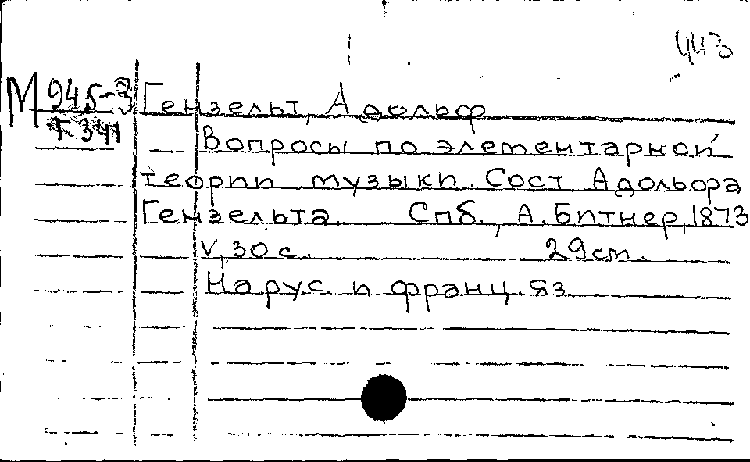 443
М 945-3 Гензельт, Адольф
Г-341
Вопросы по элементарной
теории музыки. Сост Адольфа
Гензельта. Спб., А. Битнер, 1873
V, 30 с. 29 cm.
На рус. и франц. яз